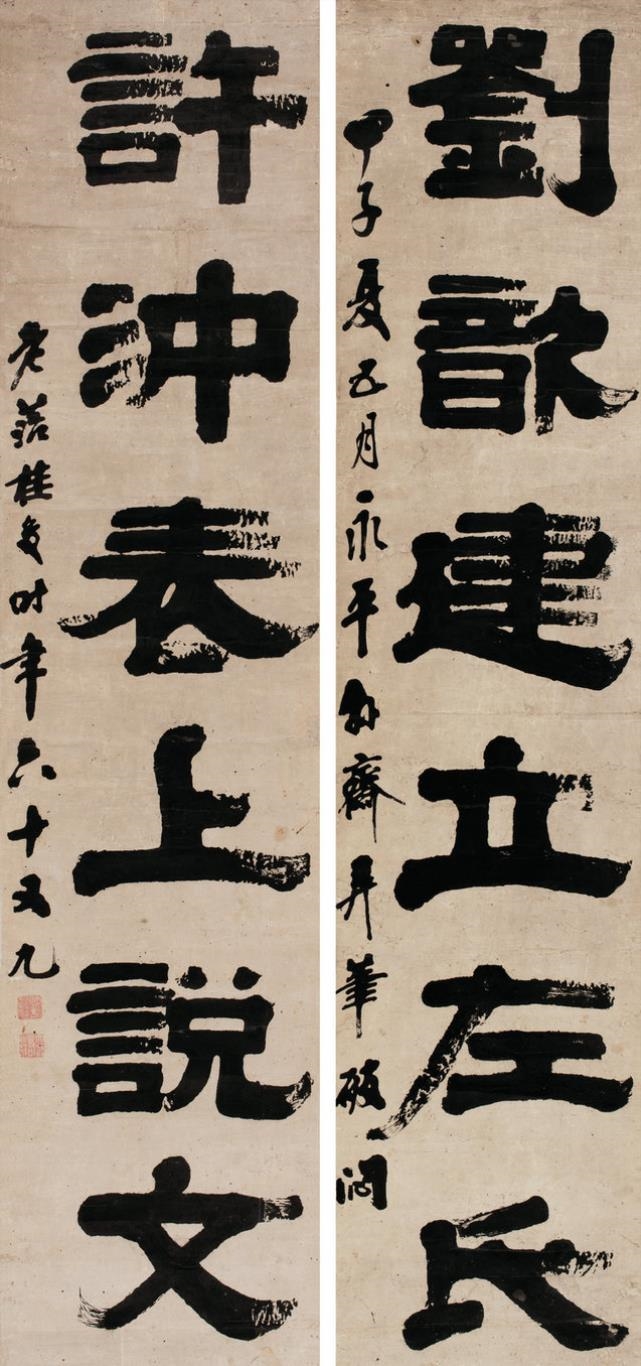 劉歆建立左氏
甲子夏五月永平縣齋弄筆破悶
許沖表上說文
老菭桂馥時年六十又九